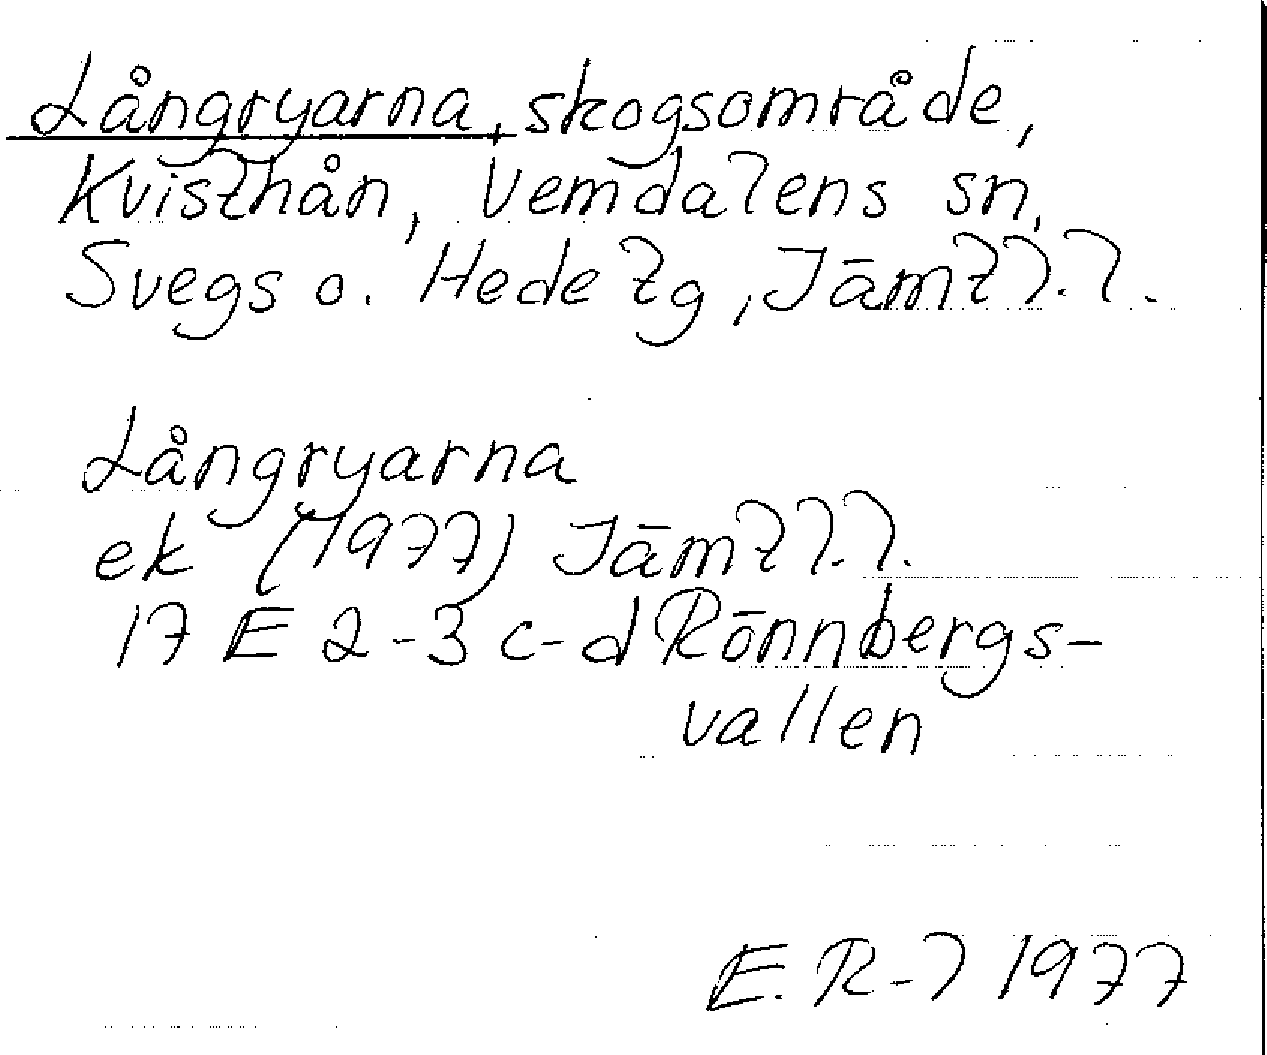 Långryarna, skogsområde,
Kvisthån, Vemdalens sn,
Svegs o. Hede tg, Jämtl.l.
Långryarna
ek (1977) Jämtl.l.
17 E 2-3 c-d Rönnbergs-
vallen
E. R-l 1977